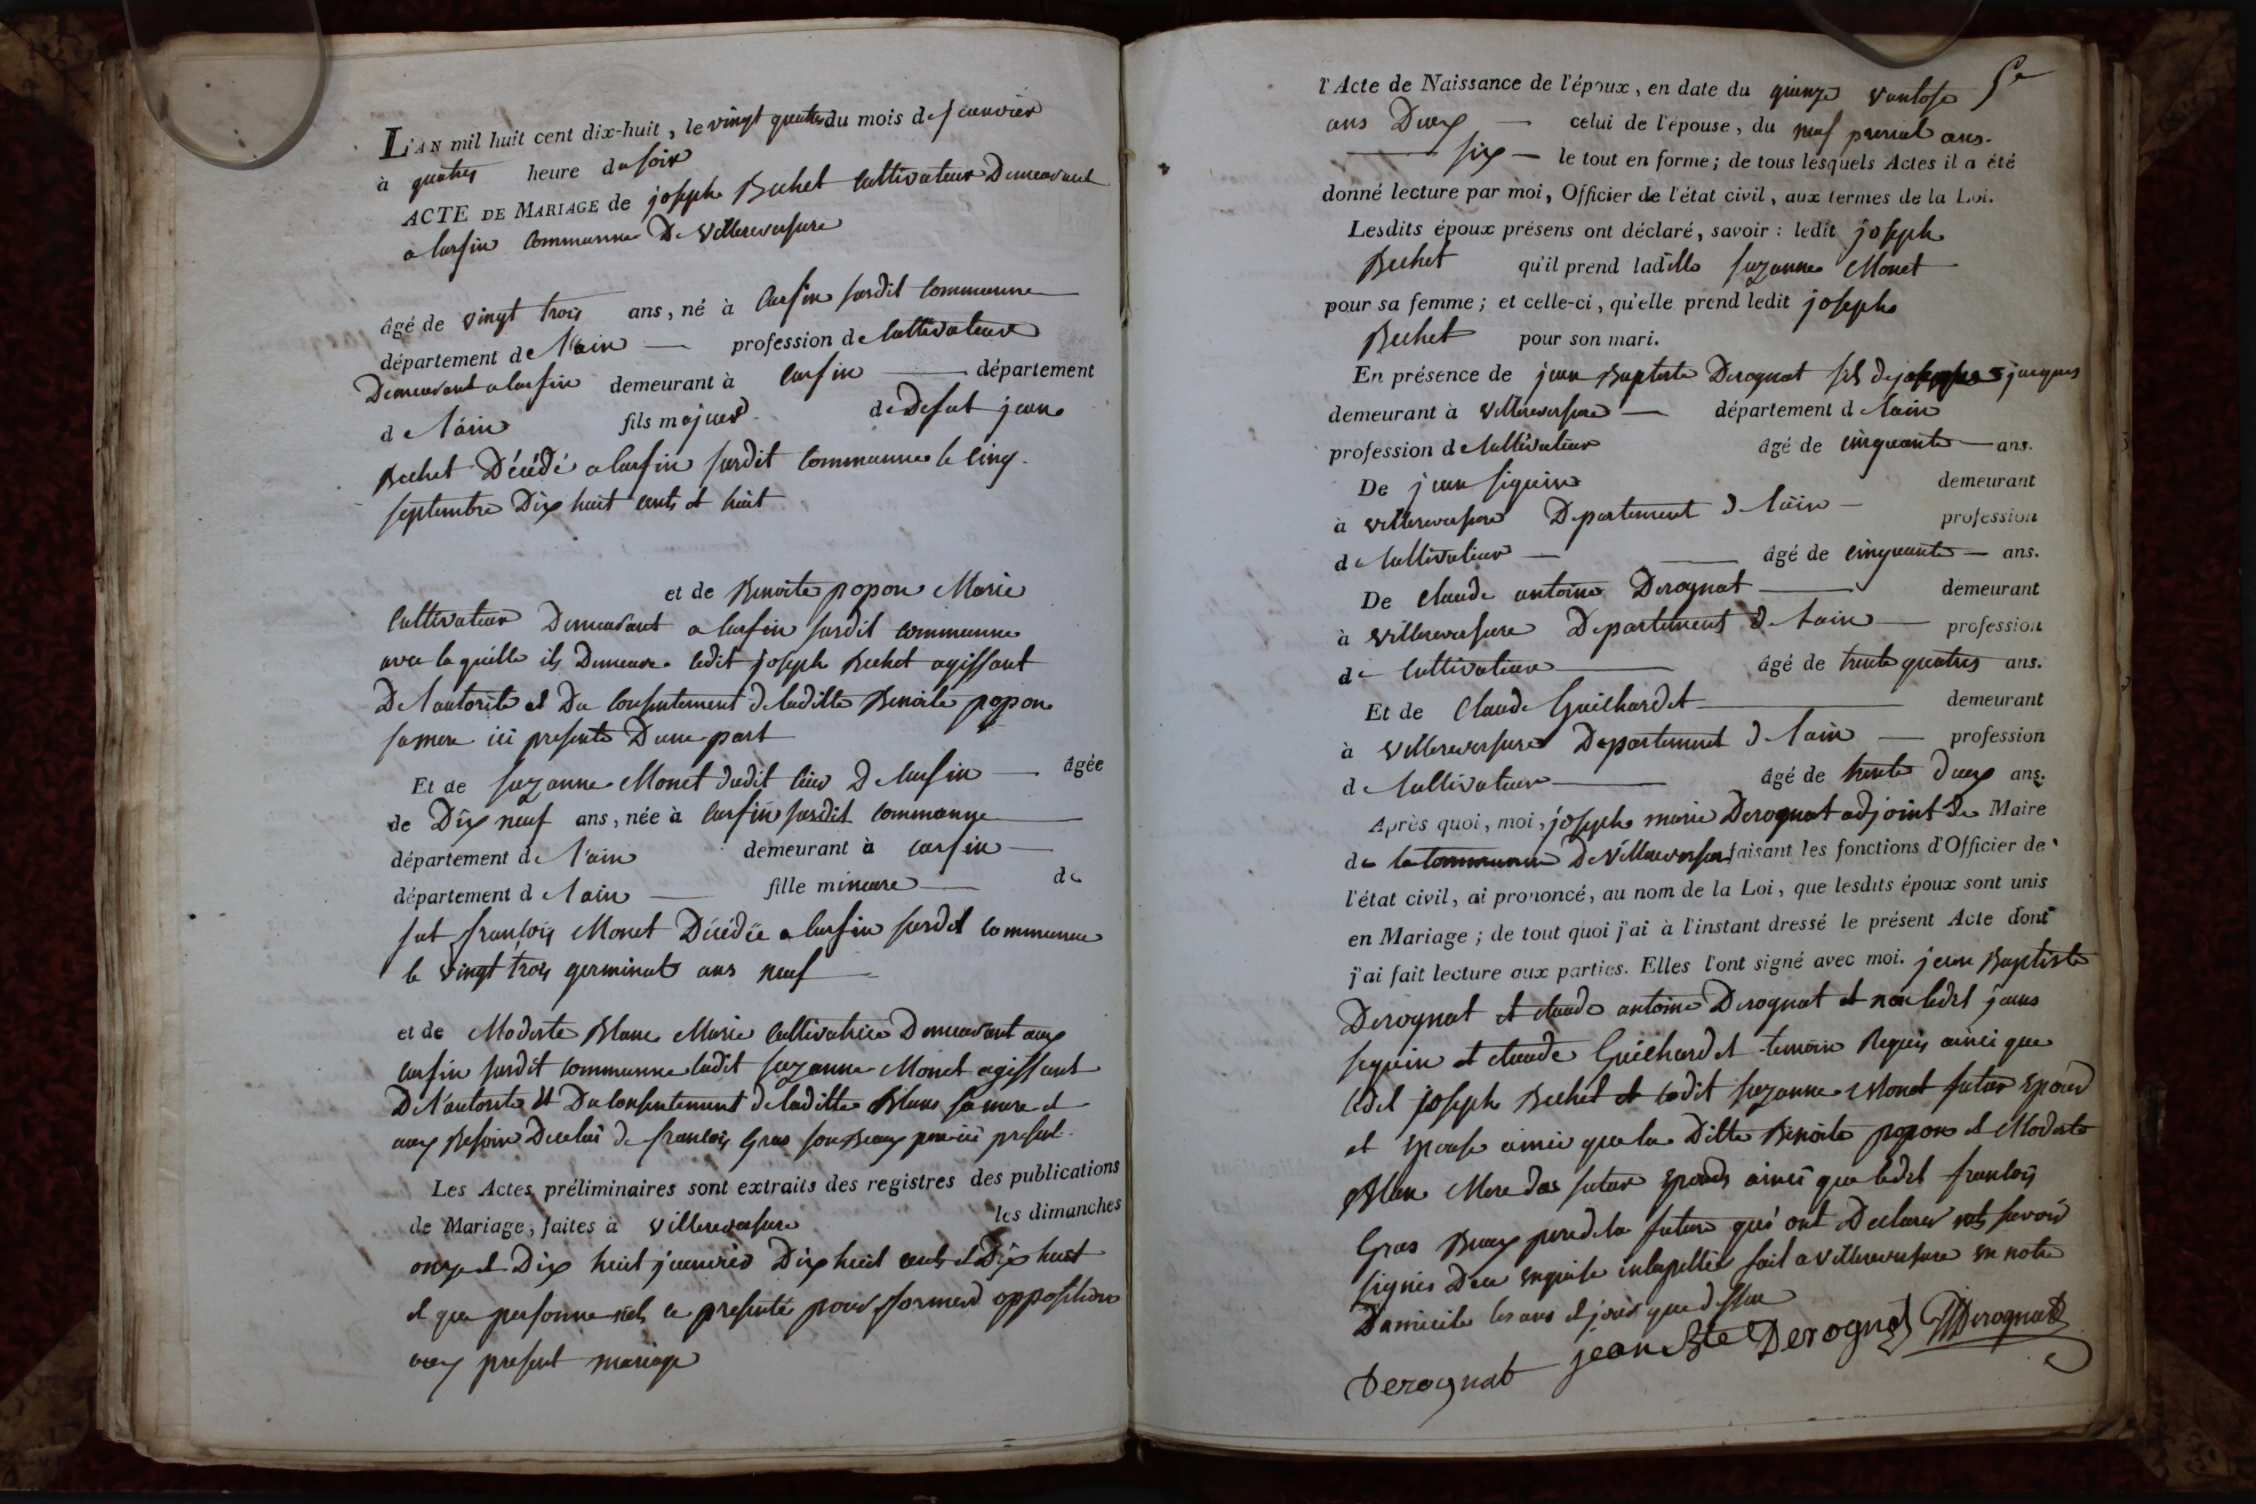 L'AN mil huit cent dix-huit, le vingt quatre du mois de janvier
à quatres heure du soir
ACTE DE MARIAGE de joseph Bechet Cultivateur Demeurant
a Carfin Commune De Villereversure
âgé de vingt trois ans, né à Carfin susdit Commune
département de l'ain — profession de Cultivateur
Demeurant a Carfin demeurant à Carfin — département
de l'ain fils majeur de Defut jean
Bechet Décédé a Carfin susdit Commune le Cinq
septembre Dix huit cents et huit
et de Benoite popon Marie
Cultivateur Demeurant a Carfin susdit commune
avec laquelle ils Demeure. ledit joseph Bechet agissant
De l'autorite et Du Consentement de laditte Benoite popon
sa mere ici presente D'une part
Et de suzanne Monet dudit lieu De Carfin — âgée
de Dix neuf ans, née à Carfin susdit commune
département de l'ain demeurant à Carfin —
département de l'ain — fille mineure — de
fut françois Monet Décédée a Carfin susdit commune
le vingt trois germinal ans neuf —
et de Modeste Blanc Marie Cultivatrice Demeurant aux
Carfin susdit commune ladit suzanne Monet agissant
De l'autorite et Du Consentement de laditte Blanc sa mere et
aux Besoin De celui de françois Gras son Beaux pere ici present
Les Actes préliminaires sont extraits des registres des publications
de Mariage, faites à Villereversure les dimanches
onze et Dix huit janvier Dix huit cents et Dix huit
et que personne presenté pour former opposition
aux present mariage
5e
l'Acte de Naissance de l'époux, en date du quinze vantose
ans Deux — celui de l'épouse, du neuf prerial ans.
— six — le tout en forme; de tous lesquels Actes il a été
donné lecture par moi, Officier de l'état civil, aux termes de la Loi.
Lesdits époux présens ont déclaré, savoir : ledit joseph
Bechet qu'il prend laditte suzanne Monet
pour sa femme; et celle-ci, qu'elle prend ledit joseph
Bechet pour son mari.
En présence de jean Baptiste Derognat fils de jacques
demeurant à Villereversure — département de l'ain
profession de Cultivateur âgé de cinquante — ans.
De jean siguin demeurant
à Villereversure Departement de l'ain — profession
de Cultivateur — âgé de cinquante — ans.
De Claude antoine Derognat — demeurant
à Villereversure Departement de l'ain — profession
de Cultivateur — âgé de trente quatres ans.
Et de Claude Guichardet — demeurant
à Villereversure Departement de l'ain — profession
de Cultivateur — âgé de trente deux ans.
Après quoi, moi, joseph marie Derognat adjoint de Maire
de la Commune De Villereversure faisant les fonctions d'Officier de
l'état civil, ai prononcé, au nom de la Loi, que lesdits époux sont unis
en Mariage; de tout quoi j'ai à l'instant dressé le présent Acte dont
j'ai fait lecture aux parties. Elles l'ont signé avec moi. jean Baptiste
Derognat et claude antoine Derognat et non ledit jean
seguin et claude Guichardet temoin Requis ainci que
ledit joseph Bechet et ladit suzanne Monet futur Epoux
et Epouse ainci que la Ditte Benoite popon et Modeste
Blanc Mere des futur Epouds ainci que ledit françois
Gras Beaux pere de la future qui ont Declarer savoir
signés De ce enquise intepellée fait a Villereversure en notre
Domicile les ans et jour que dessus
Derognat jean Bte Derognat Derognat